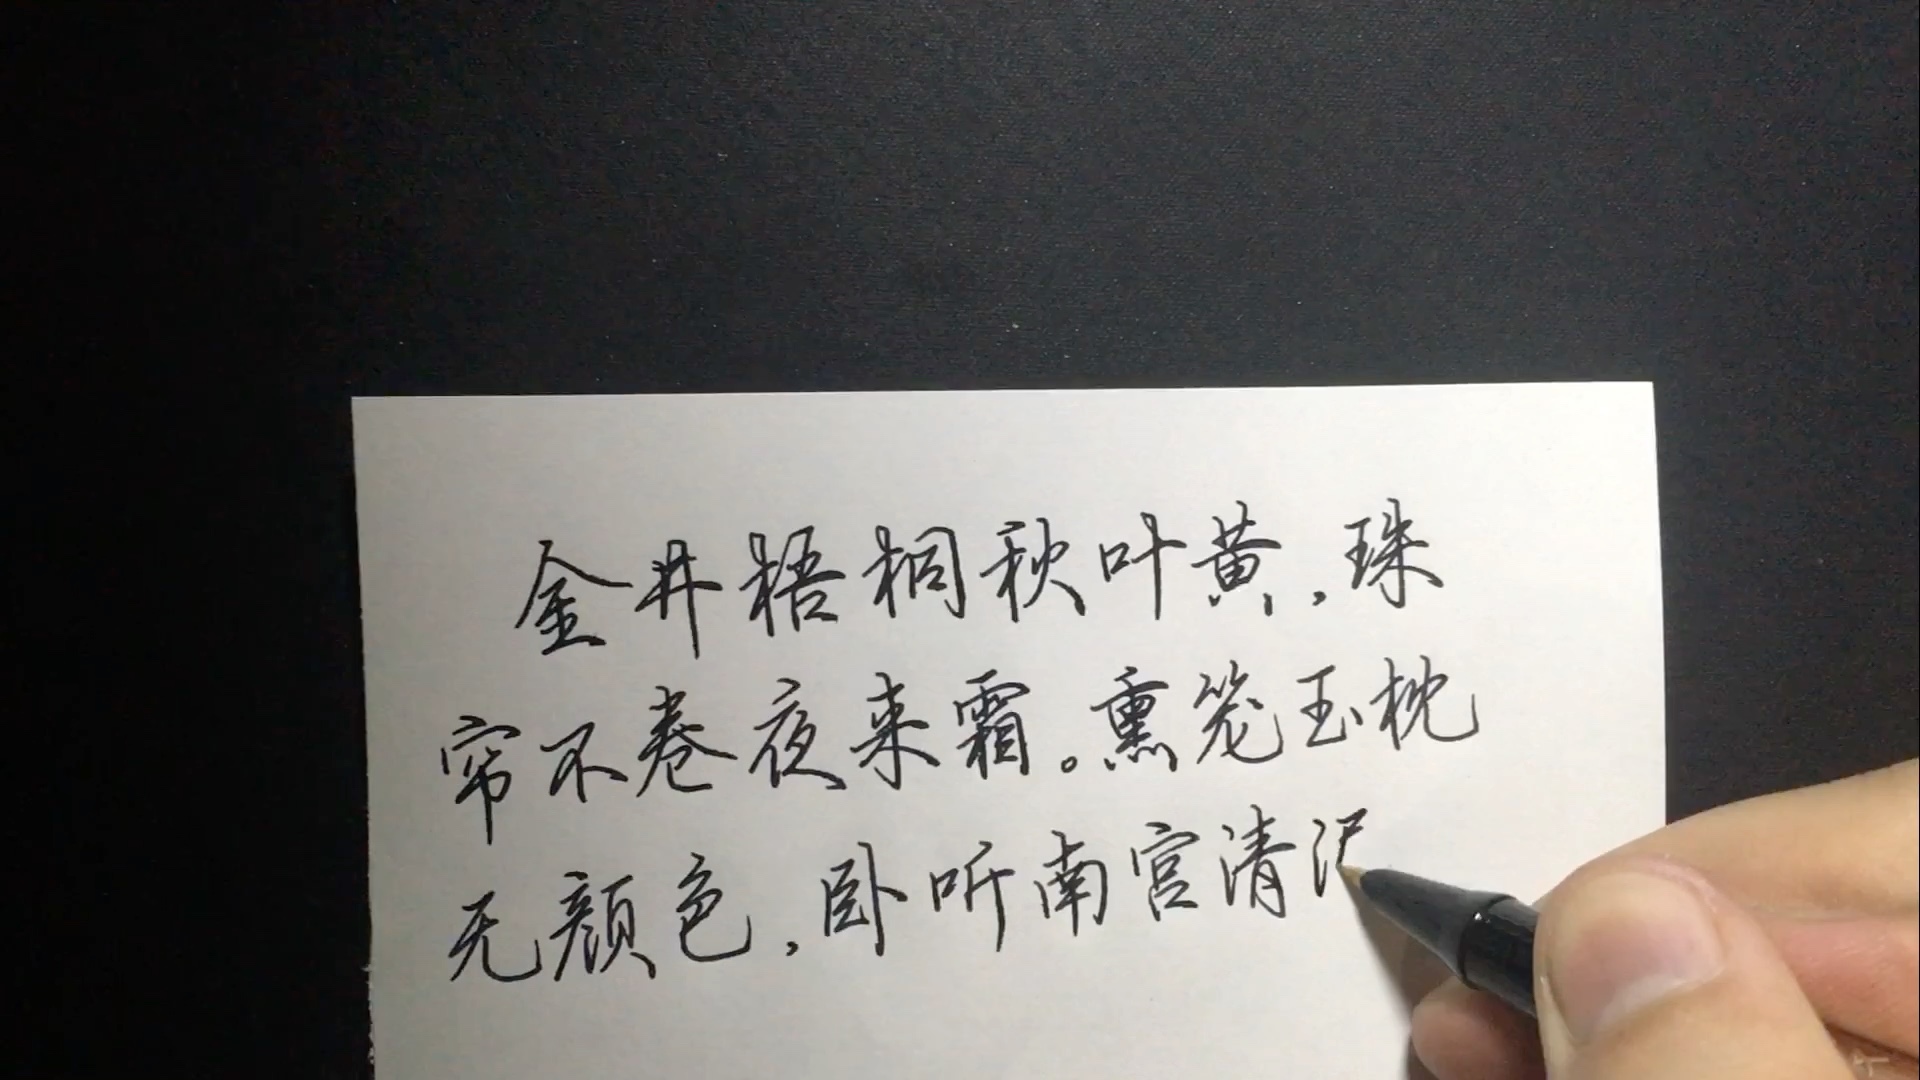 金井梧桐秋叶黄,珠
帘不卷夜来霜。熏笼玉枕
无颜色,卧听南宫清